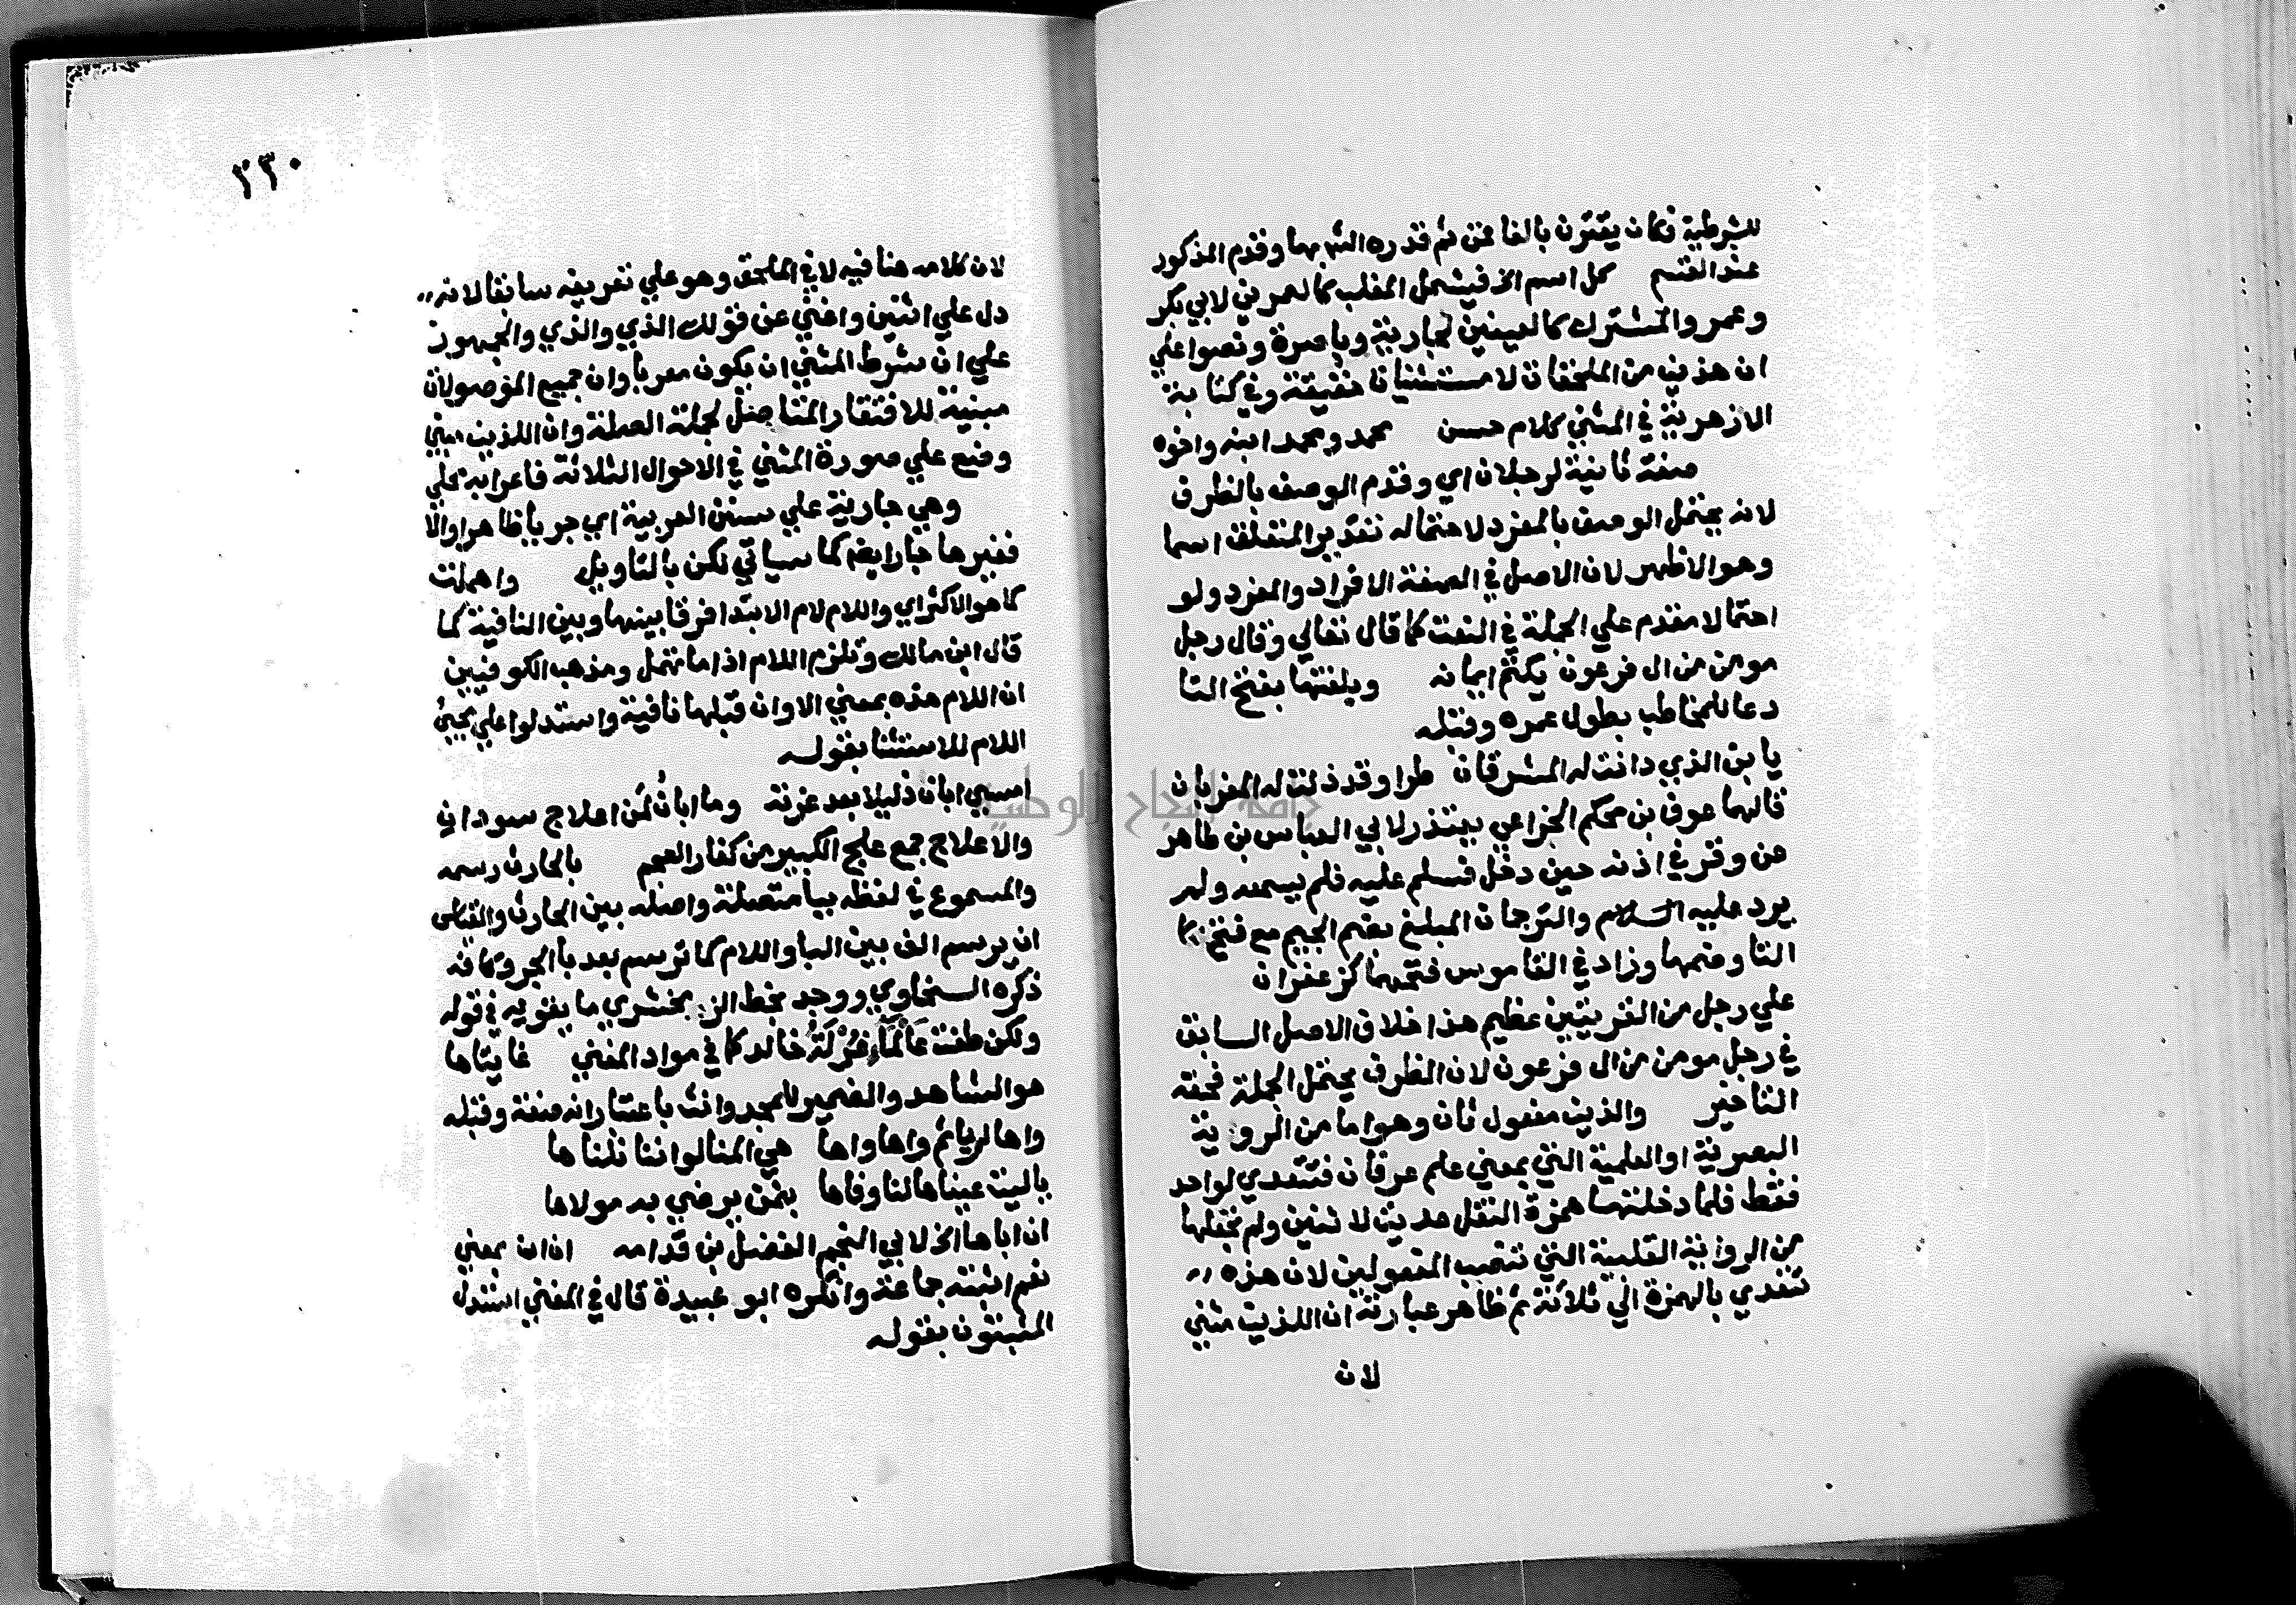 للشرطية فكان يقترن بالفا فمن ثم قدره الش بهما وقدم المذكور
عند القسم كل اسم الخ فيشمل المغلب كالعمرين لابي بكر
وعمر والمشترك كالعينين لجارية وباصرة ونصوا علي
ان هذين من الملحقات لا مستثنيان حقيقة وفي كتابة
الازهرية في المثني كلام حسن محمد ومحمد ابنه واخوه
صفة ثانية لرجلان اي وقدم الوصف بالظرف
لانه يحتمل الوصف بالمفرد لاحتماله تقدير المتعلق اسما
وهو الاظهر لان الاصل في الصفة الافراد والمفرد ولو
احتمالا مقدم علي الجملة في النعت كما قال تعالي وقال رجل
مومن من ال فرعون يكتم ايمانه وبلغتها بفتح التا
دعا للمخاطب بطول عمره وقبله
يا بن الذي دانت له المشرقان طرا وقد ذلت له المغربان
قالهما عوف بن محكم الخزاعي يعتذر لابي العباس بن طاهر
من وقر في اذنه حين دخل فسلم عليه فلم يسمعه ولم
يرد عليه السلام والترجمان المبلغ بضم الجيم مع فتح
التا وضمها وزاد في القاموس فتحهما كزعفران
علي رجل من القريتين عظيم هذا خلاف الاصل السابق
في رجل مومن من ال فرعون لان الظرف يحتمل الجملة فحقه
التاخير والذين مفعول ثان وهو اما من الروية
البصرية او العلمية التي بمعني علم عرفان فتتعدي لواحد
فقط فلما دخلتها همزة النقل عديت لاثنين ولم نجعلها
من الروية القلبية التي تنصب المفعولين لان هذه
تتعدي بالهمزة الي ثلاثة ثم ظاهر عبارته ان اللذين مثني
لان
٢٣٠
لان كلامه هنا فيه لا في الملحق وهو علي تعريفه سابقا لانه
دل علي اثنين واغني عن قولك الذي والذي والجمهور
علي ان شرط المثني ان يكون معربا وان جميع الموصولات
مبنية للافتقار المتاصل لجملة الصلة وان اللذين مبني
وضع علي صورة المثني في الاحوال الثلاثة فاعرابه محلي
وهي جارية علي سنن العربية اي جريا ظاهرا والا
فغيرها جار ايضا كما سياتي لكن بالتاويل واهملت
كما هو الاكثر اي واللام لام الابتدا فرقا بينها وبين النافية كما
قال ابن مالك وتلزم اللام اذا ما تهمل ومذهب الكوفيين
ان اللام هذه بمعني الا وان قبلها نافية واستدلوا علي مجئ
اللام للاستثنا بقوله
امسي ابان ذليلا بعد عزته وما ابان لمن اعلاج سودان
والاعلاج جمع علج الكبير من كفار العجم بالحارث رسمه
والمسموع في لفظه بيا متصلة واصله بين الحارث والقياس
ان يرسم الف بين البا واللام كما ترسم بعد با الجر وكافه
ذكره السخاوي ووجد بخط الزمخشري ما يقويه في قوله
ولكن طفت عالما غرلة خالد كما في مواد المغني غايتاها
هو الشاهد والضمير للمجد وانث باعتبار انه صفة وقبله
واها لريا ثم واها واها هي المنا لو اننا نلناها
ياليت عيناها لنا وفاها بثمن يرضي به مولاها
ان اباها الخ لابي النجم الفضل بن قدامه ان ان بمعني
نعم اثبته جماعة وانكره ابو عبيدة قال في المغني استدل
المثبتون بقوله